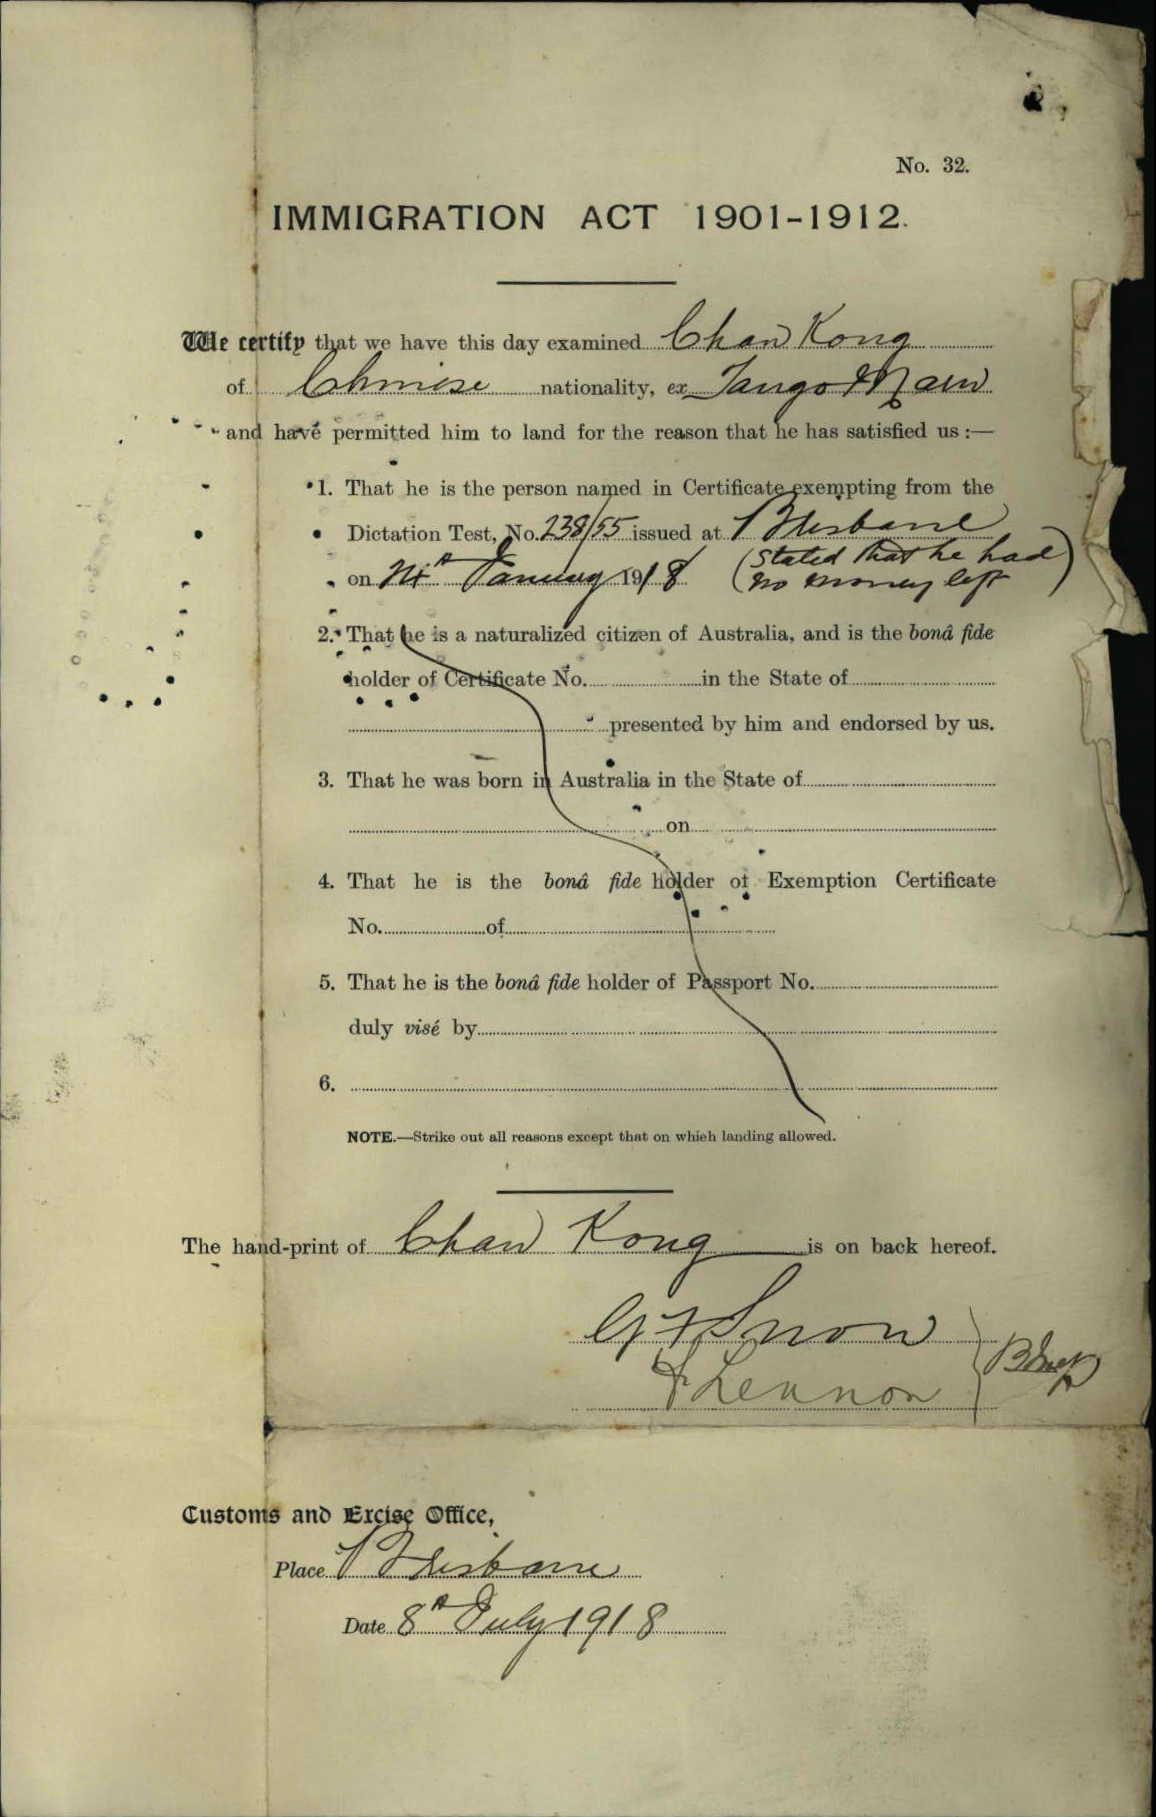 No. 32.
IMMIGRATION ACT 1901-1912.
We certify that we have this day examined Chan Kong
of Chinese nationality, ex Tango Maru
and have permitted him to land for the reason that he has satisfied us :—
1. That he is the person named in Certificate exempting from the
Dictation Test, No. 238/55 issued at Brisbane
on January 1918 (Stated that he had
no money left)
2. That he is a naturalized citizen of Australia, and is the bonâ fide
holder of Certificate No. in the State of
presented by him and endorsed by us.
3. That he was born in Australia in the State of
on
4. That he is the bonâ fide holder of Exemption Certificate
No. of
5. That he is the bonâ fide holder of Passport No.
duly visé by
6.
NOTE.—Strike out all reasons except that on which landing allowed.
The hand-print of Chan Kong is on back hereof.
G F Snow
Lennon
Customs and Excise Office,
Place Brisbane
Date 8th July 1918